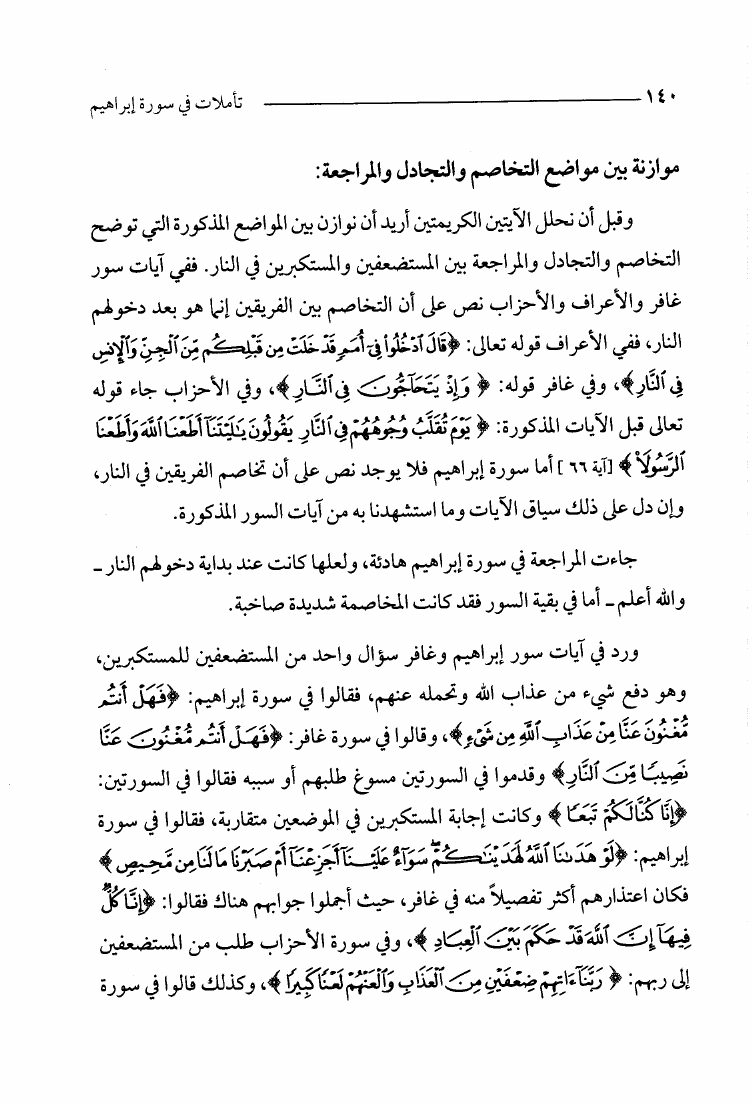 ١٤٠ تأملات في سورة إبراهيم
موازنة بين مواضع التخاصم والتجادل والمراجعة:
وقبل أن نحلل الآيتين الكريمتين أريد أن نوازن بين المواضع المذكورة التي توضح
التخاصم والتجادل والمراجعة بين المستضعفين والمستكبرين في النار. ففي آيات سور
غافر والأعراف والأحزاب نص على أن التخاصم بين الفريقين إنما هو بعد دخولهم
النار، ففي الأعراف قوله تعالى: ﴿قَالَ ٱدْخُلُوا۟ فِىٓ أُمَمٍ قَدْ خَلَتْ مِن قَبْلِكُم مِّنَ ٱلْجِنِّ وَٱلْإِنسِ
فِى ٱلنَّارِ﴾، وفي غافر قوله: ﴿وَإِذْ يَتَحَآجُّونَ فِى ٱلنَّارِ﴾، وفي الأحزاب جاء قوله
تعالى قبل الآيات المذكورة: ﴿يَوْمَ تُقَلَّبُ وُجُوهُهُمْ فِى ٱلنَّارِ يَقُولُونَ يَٰلَيْتَنَآ أَطَعْنَا ٱللَّهَ وَأَطَعْنَا
ٱلرَّسُولَا۠﴾ [آية ٦٦] أما سورة إبراهيم فلا يوجد نص على أن تخاصم الفريقين في النار،
وإن دل على ذلك سياق الآيات وما استشهدنا به من آيات السور المذكورة.
جاءت المراجعة في سورة إبراهيم هادئة، ولعلها كانت عند بداية دخولهم النار –
والله أعلم – أما في بقية السور فقد كانت المخاصمة شديدة صاخبة.
ورد في آيات سور إبراهيم وغافر سؤال واحد من المستضعفين للمستكبرين،
وهو دفع شيء من عذاب الله وتحمله عنهم، فقالوا في سورة إبراهيم: ﴿فَهَلْ أَنتُم
مُّغْنُونَ عَنَّا مِنْ عَذَابِ ٱللَّهِ مِن شَىْءٍ﴾، وقالوا في سورة غافر: ﴿فَهَلْ أَنتُم مُّغْنُونَ عَنَّا
نَصِيبًا مِّنَ ٱلنَّارِ﴾ وقدموا في السورتين مسوغ طلبهم أو سببه فقالوا في السورتين:
﴿إِنَّا كُنَّا لَكُمْ تَبَعًا﴾ وكانت إجابة المستكبرين في الموضعين متقاربة، فقالوا في سورة
إبراهيم: ﴿لَوْ هَدَىٰنَا ٱللَّهُ لَهَدَيْنَٰكُمْ ۖ سَوَآءٌ عَلَيْنَآ أَجَزِعْنَآ أَمْ صَبَرْنَا مَا لَنَا مِن مَّحِيصٍ﴾
فكان اعتذارهم أكثر تفصيلاً منه في غافر، حيث أجملوا جوابهم هناك فقالوا: ﴿إِنَّا كُلٌّ
فِيهَآ إِنَّ ٱللَّهَ قَدْ حَكَمَ بَيْنَ ٱلْعِبَادِ﴾، وفي سورة الأحزاب طلب من المستضعفين
إلى ربهم: ﴿رَبَّنَآ ءَاتِهِمْ ضِعْفَيْنِ مِنَ ٱلْعَذَابِ وَٱلْعَنْهُمْ لَعْنًا كَبِيرًا﴾، وكذلك قالوا في سورة